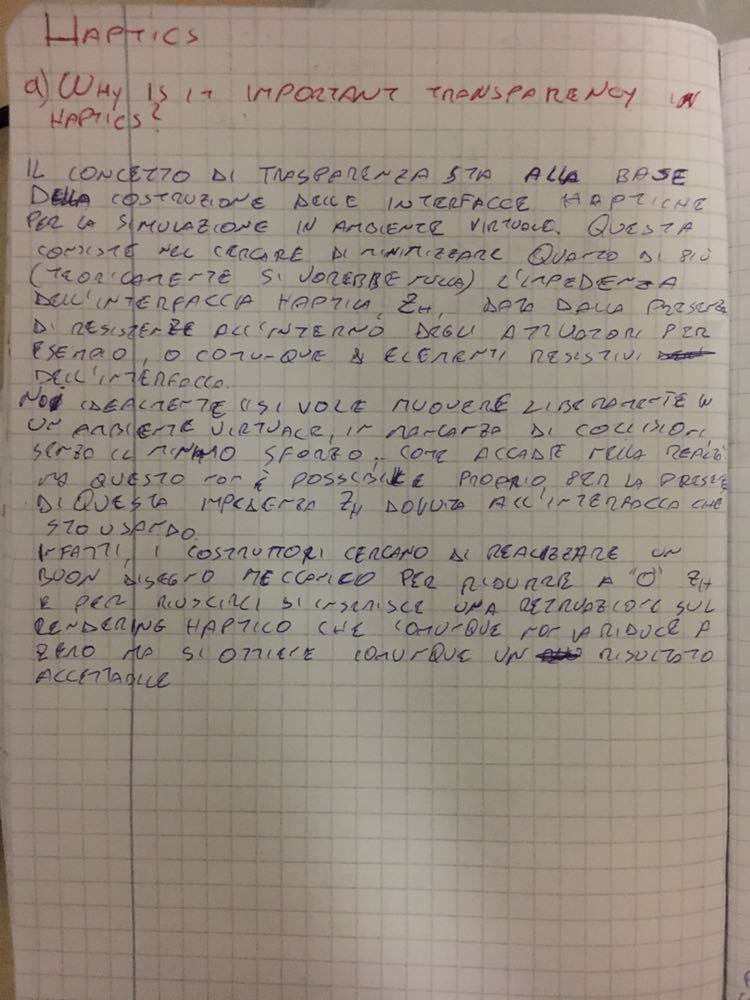 HAPTICS
a) WHY IS IT IMPORTANT TRANSPARENCY IN
HAPTICS?
IL CONCETTO DI TRASPARENZA STA ALLA BASE
DELLA COSTRUZIONE DELLE INTERFACCE HAPTICHE
PER LA SIMULAZIONE IN AMBIENTE VIRTUALE. QUESTA
CONSISTE NEL CERCARE DI MINIMIZZARE QUANTO DI PIÙ
(TEORICAMENTE SI VORREBBE NULLA) L'IMPEDENZA
DELL'INTERFACCIA HAPTICA, ZH, DATA DALLA PRESENZA
DI RESISTENZE ALL'INTERNO DEGLI ATTUATORI PER
ESEMPIO, O COMUNQUE ELEMENTI RESISTIVI
DELL'INTERFACCIA.
NOI IDEALMENTE SI VOLE MUOVERE LIBERAMENTE IN
UN AMBIENTE VIRTUALE, IN MANCANZA DI COLLISIONI,
SENZA IL MINIMO SFORZO, COME ACCADE NELLA REALTÀ
MA QUESTO NON È POSSIBILE PROPRIO PER LA PRESENZA
DI QUESTA IMPEDENZA ZH DOVUTA ALL'INTERFACCIA CHE
STO USANDO.
INFATTI, I COSTRUTTORI CERCANO DI REALIZZARE UN
BUON DISEGNO MECCANICO PER RIDURRE A "0" ZH
E PER RIUSCIRCI SI INSERISCE UNA RETROAZIONE SUL
RENDERING HAPTICO CHE COMUNQUE NON LA RIDUCE A
ZERO MA SI OTTIENE COMUNQUE UN RISULTATO
ACCETTABILE